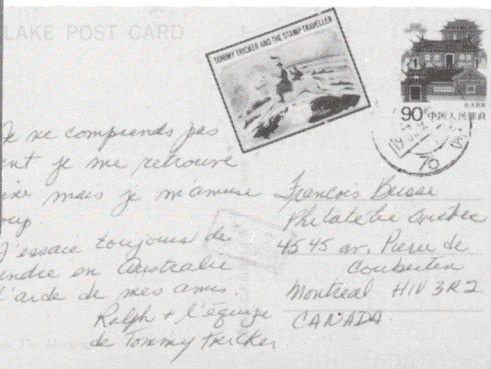 LAKE POST CARD
TOMMY TRICKER AND THE STAMP TRAVELLER
90
中国人民邮政
70
Je ne comprends pas
ent je me retrouve
ine mais je m'amuse
oup.
J'essaie toujours de
endre en Australie
l'aide de mes amis.
Ralph + l'équipe
de Tommy Tricker
François Brisse
Philatélie Québec
4545 av. Pierre de
Coubertin
Montreal H1V 3R2
CANADA